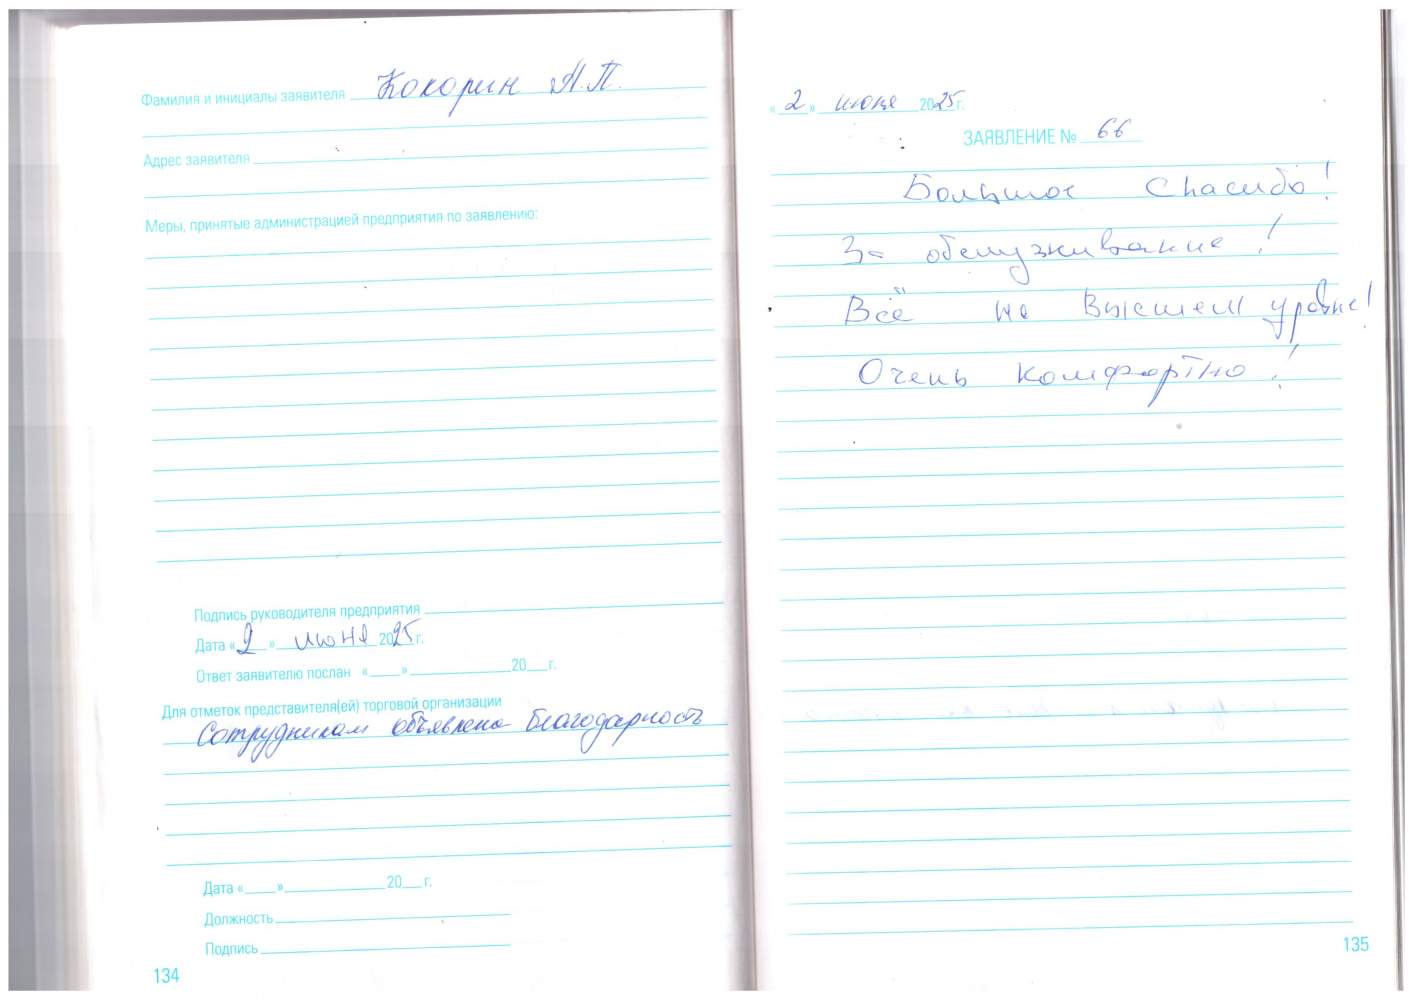 Фамилия и инициалы заявителя Кокорин А.П.
Адрес заявителя
Меры, принятые администрацией предприятия по заявлению:
Подпись руководителя предприятия
Дата «2» июня 2025 г.
Ответ заявителю послан «___» ___ 20__ г.
Для отметок представителя(ей) торговой организации
Сотрудникам объявлена благодарность
Дата «___» ___ 20__ г.
Должность
Подпись
134
«2» июня 2025 г.
ЗАЯВЛЕНИЕ № 66
Большое Спасибо!
За обслуживание!
Всё на высшем уровне!
Очень комфортно!
135